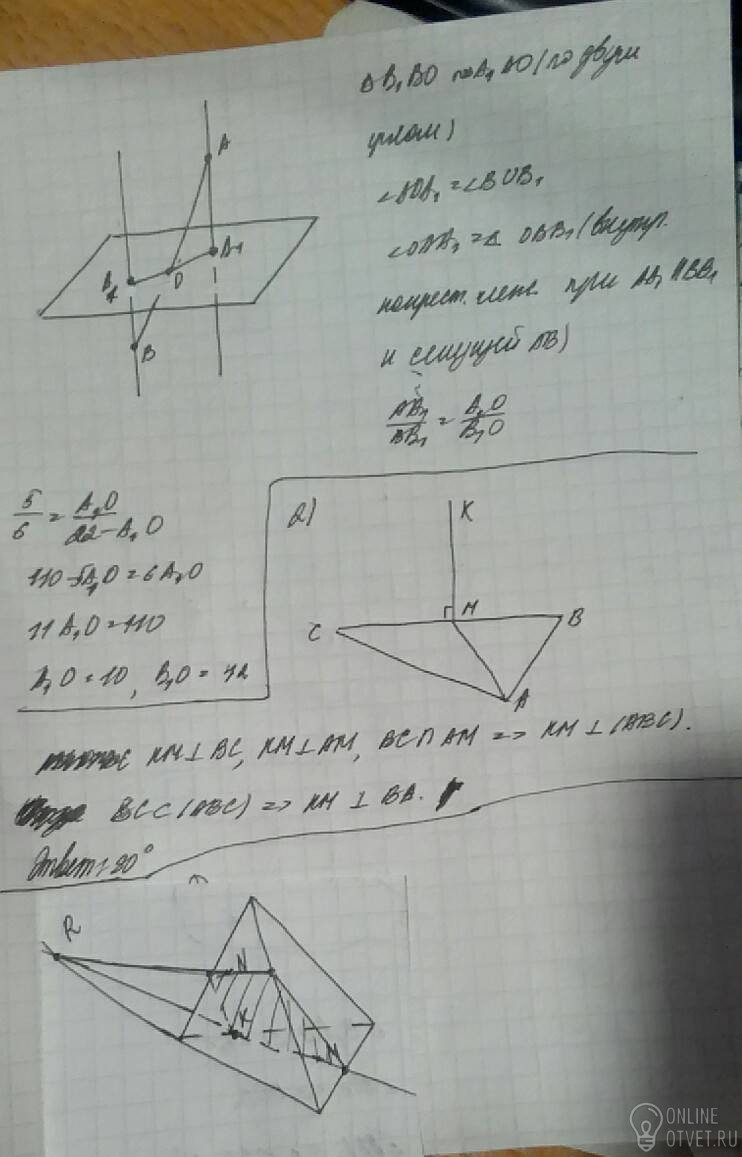 A
A₁
B₁
O
B
Δ B₁BO ∾ A₁AO (по двум
углам)
∠AOA₁ = ∠BOB₁
∠OAA₁ = ∠ OBB₁ (внутр.
накрест. леж. при AA₁ || BB₁
и секущей AB)
AA₁/BB₁ = A₁O/B₁O
5/6 = A₁O/22-A₁O
110-5A₁O = 6A₁O
11A₁O = 110
A₁O = 10, B₁O = 12
2)
K
C
M
B
A
KM ⊥ BC, KM ⊥ AM, BC ∩ AM => KM ⊥ (ABC).
BC ⊂ (ABC) => KM ⊥ BA.
Ответ: 90°
R
N
K
M
ONLINE
OTVET.RU